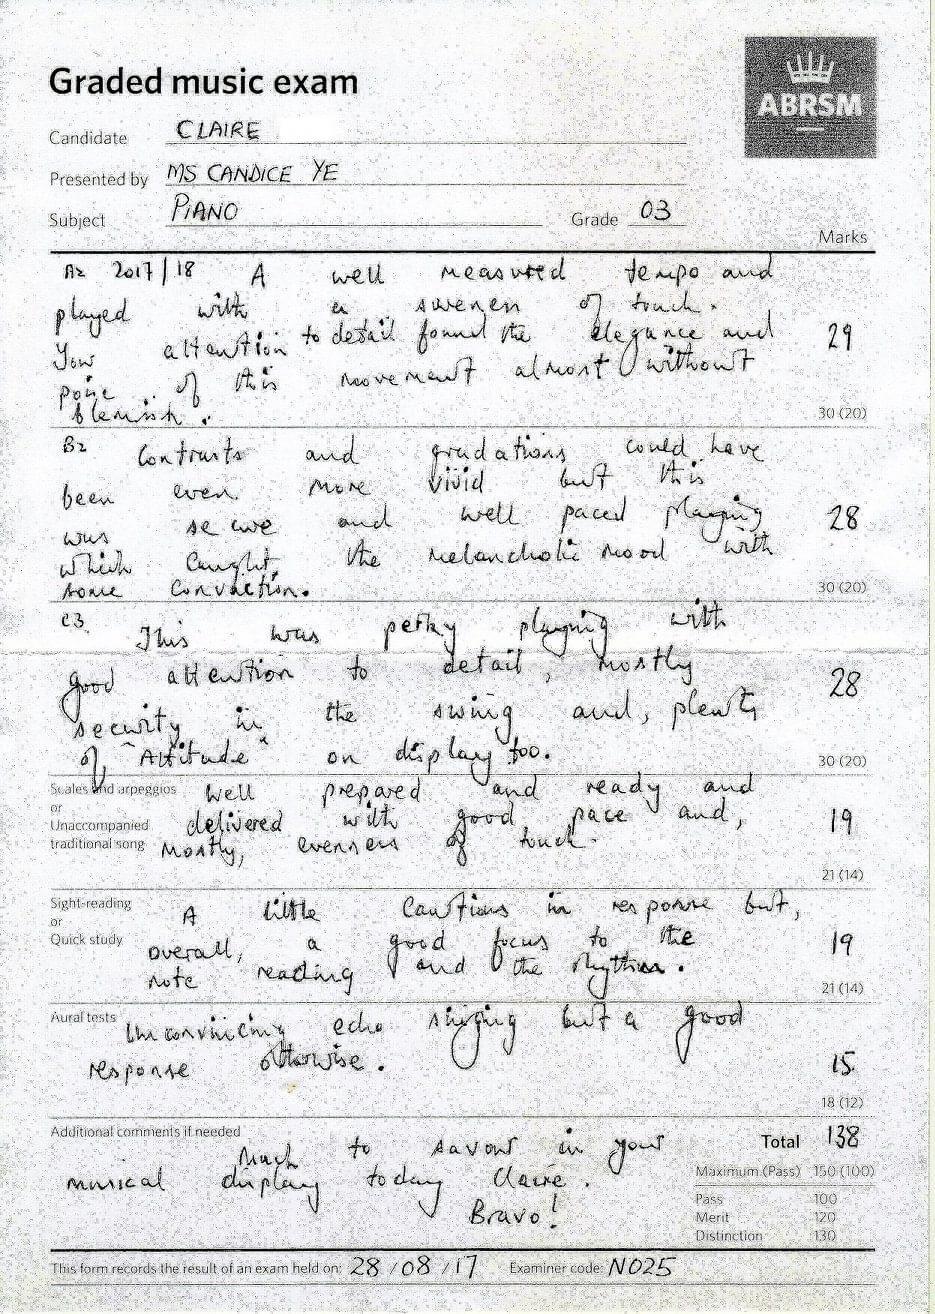 Graded music exam
ABRSM
Candidate CLAIRE
Presented by MS CANDICE YE
Subject PIANO Grade 03
Marks
A2 2017/18 A well measured tempo and
played with a evenness of touch.
Your attention to detail found the elegance and
poise of this movement almost without
blemish.
29
30 (20)
B2 Contrasts and gradations could have
been even more vivid but this
was secure and well paced playing
which caught the melancholic mood with
some conviction.
28
30 (20)
C3 This was perky playing with
good attention to detail, mostly
security in the swing and, plenty
of "Attitude" on display too.
28
30 (20)
Scales and arpeggios
or
Unaccompanied
traditional song
Well prepared and ready and
delivered with good pace and,
mostly, evenness of touch.
19
21 (14)
Sight-reading
or
Quick study
A little cautious in response but,
overall, a good focus to the
note reading and the rhythm.
19
21 (14)
Aural tests
Unconvincing echo singing but a good
response otherwise.
15
18 (12)
Additional comments if needed
Much to savour in your
musical display today Claire.
Bravo!
Total 138
Maximum (Pass) 150 (100)
Pass 100
Merit 120
Distinction 130
This form records the result of an exam held on: 28/08/17 Examiner code: N025